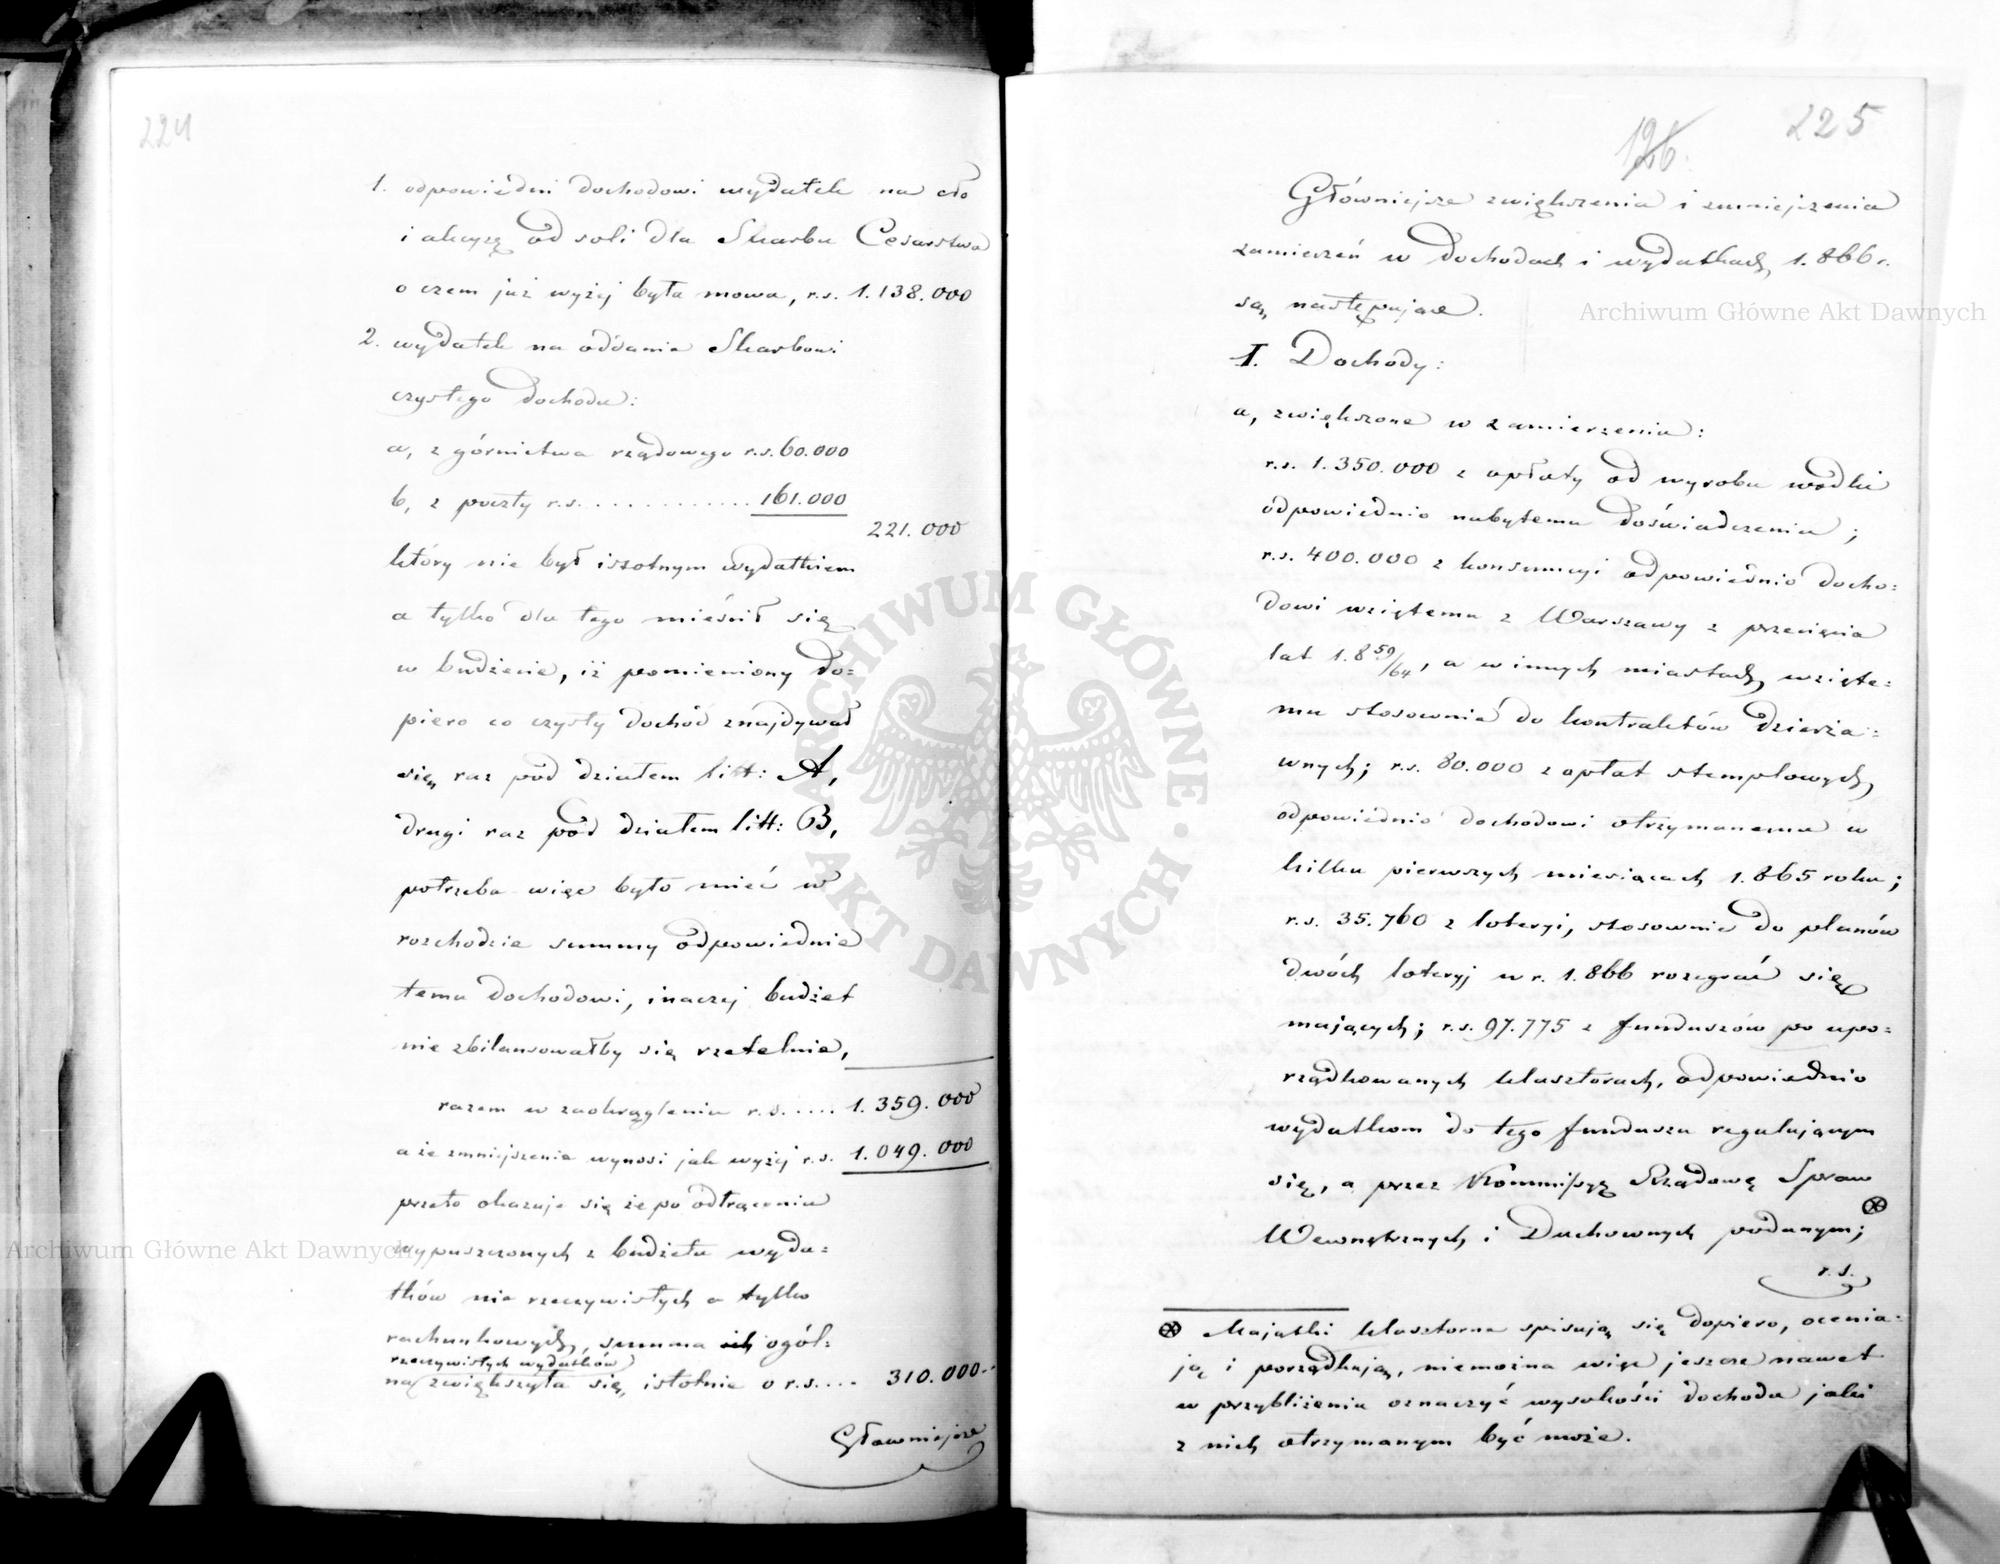 224
1. odpowiedni dochodowi wydatek na cło
i akcyzę od soli dla Skarbu Cesarstwa
o czem już wyżej była mowa, r.s. 1.138.000
2. wydatek na oddanie Skarbowi
czystego dochodu:
a, z górnictwa rządowego r.s. 60.000
b, z poczty r.s. . . . . . . . . . . . . 161.000
221.000
który nie był istotnym wydatkiem
a tylko dla tego mieścił się
w budżecie, iż pomieniony do=
piero co czysty dochód znajdywał
się raz pod działem litt: A,
drugi raz pod działem litt: B,
potrzeba więc było mieć w
rozchodzie summy odpowiednie
temu dochodowi, inaczej budżet
nie zbilansowałby się rzetelnie,
razem w zaokrągleniu r.s. .... 1.359.000
a że zmniejszenie wynosi jak wyżej r.s. 1.049.000
przeto okazuje się że po odtrąceniu
wypuszczonych z budżetu wyda=
tków nie rzeczywistych a tylko
rachunkowych, summa ogól=
rzeczywistych wydatków
na zwiększyła się istotnie o r.s. ... 310.000.-
Główniejsze
225
126.
Główniejsze zwiększenia i zmniejszenia
zamierzeń w dochodach i wydatkach 1.866 r.
są następujące.
I. Dochody:
a, zwiększone w zamierzeniu:
r.s. 1.350.000 z opłaty od wyrobu wódki
odpowiednio nabytemu doświadczeniu;
r.s. 400.000 z konsumcyi odpowiednio docho=
dowi wziętemu z Warszawy z przecięcia
lat 1.8 59/64, a w innych miastach wzięte=
mu stosownie do kontraktów dzierża=
wnych; r.s. 80.000 z opłat stemplowych
odpowiednio dochodowi otrzymanemu w
kilku pierwszych miesiącach 1.865 roku;
r.s. 35.760 z loteryi, stosownie do planów
dwóch loteryj w r. 1.866 rozegrać się
mających; r.s. 97.775 z funduszów po upo=
rządkowanych klasztorach, odpowiednio
wydatkom do tego funduszu regulującym
się, a przez Kommissyę Rządową Spraw
Wewnętrznych i Duchownych podanym; ⊗
r.s.
⊗ Majątki klasztorne spisują się dopiero, ocenia=
ją i porządkują, niemożna więc jeszcze nawet
w przybliżeniu oznaczyć wysokości dochodu jaki
z nich otrzymanym być może.
Archiwum Główne Akt Dawnych
Archiwum Główne Akt Dawnych
ARCHIWUM GŁÓWNE AKT DAWNYCH